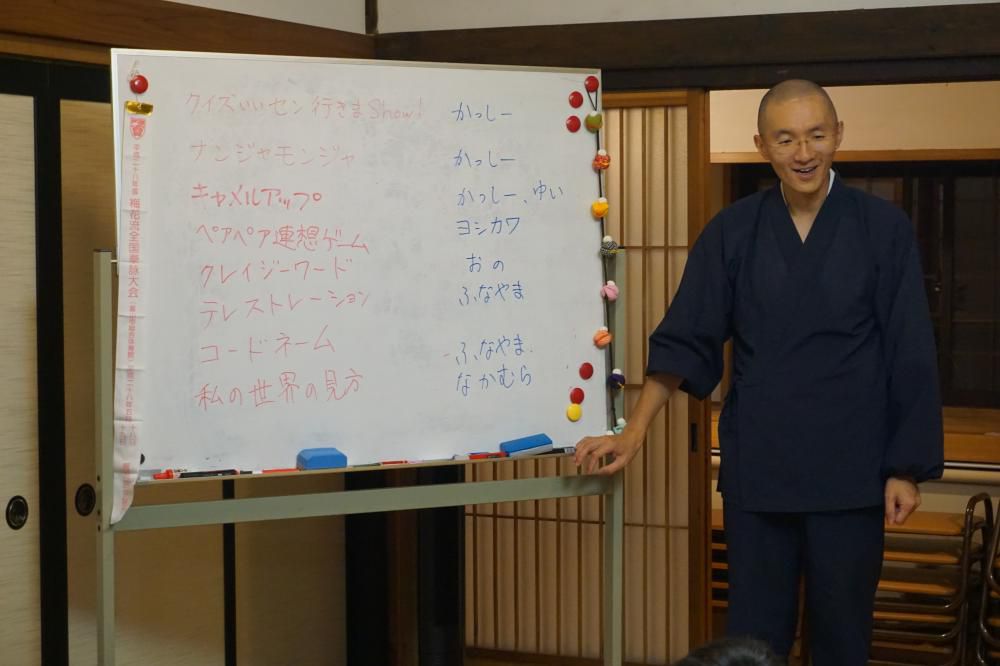 クイズいいセン行きまShow! かっしー
ナンジャモンジャ かっしー
キャメルアップ かっしー、ゆい
ペアペア連想ゲーム ヨシカワ
クレイジーワード おの
テレストレーション ふなやま
コードネーム ふなやま
私の世界の見方 なかむら
平成二十八年度 梅花流全国奉詠大会